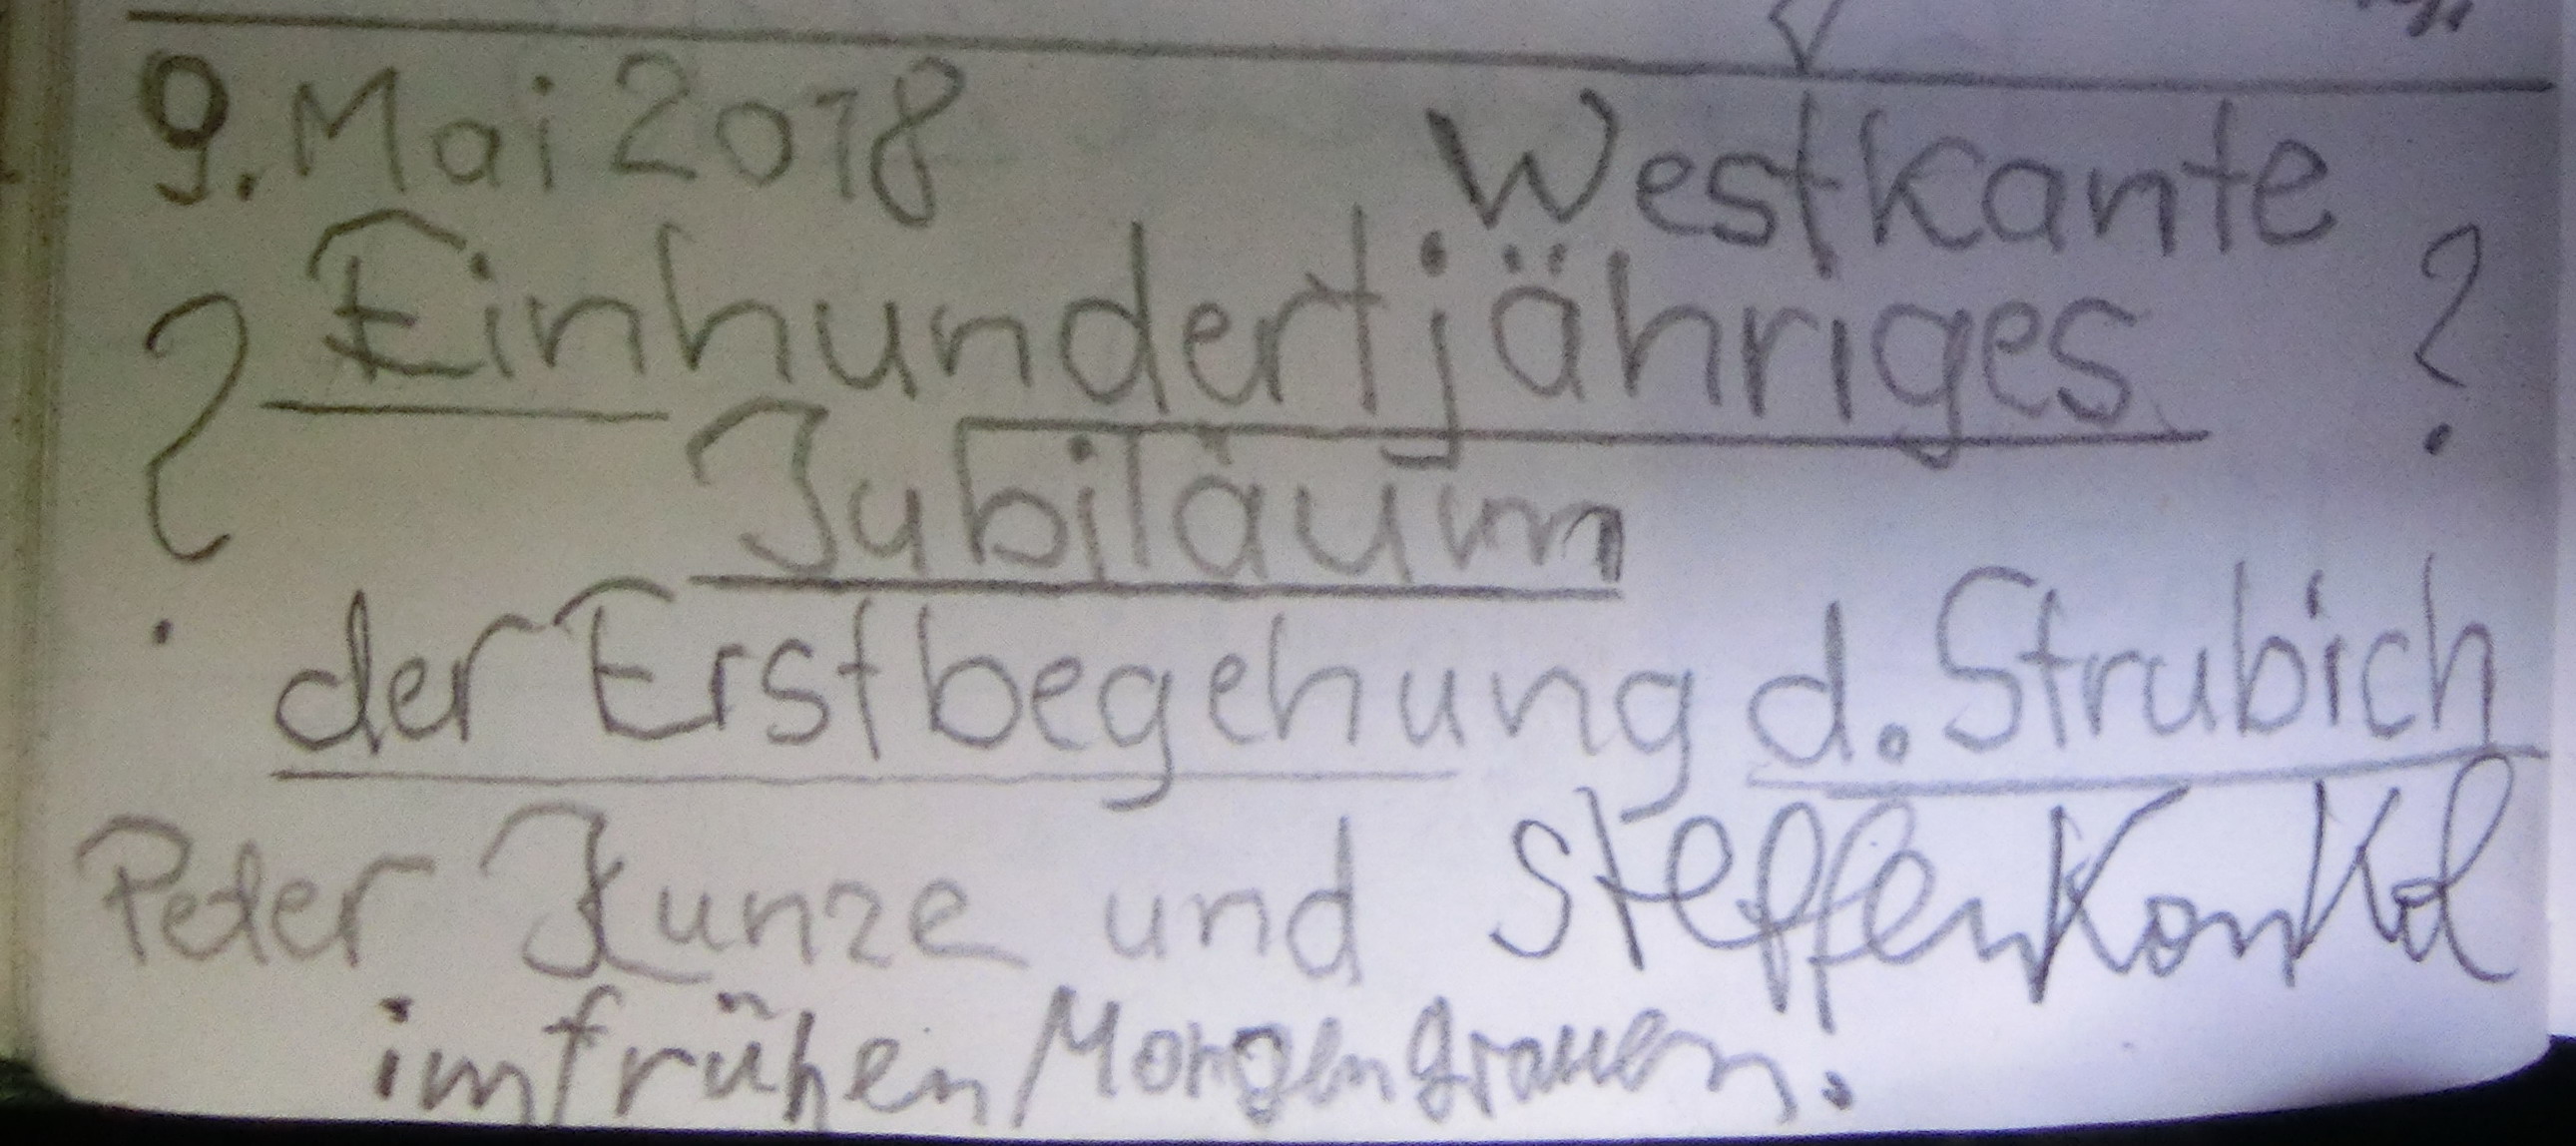 9. Mai 2018 Westkante
? Einhundertjähriges ?
Jubiläum
der Erstbegehung d. Strubich
Peter Kunze und Steffen Konkol
im frühen Morgengrauen.